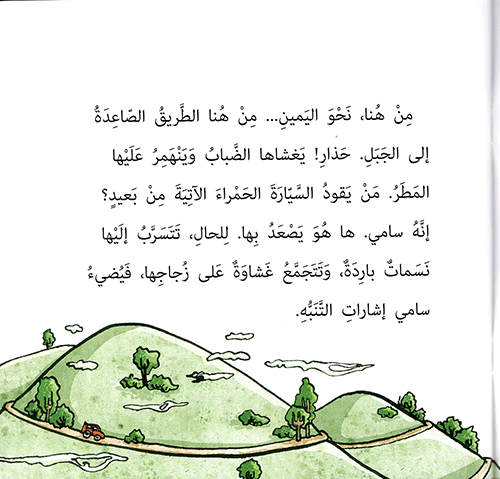 مِنْ هُنا، نَحْوَ اليَمينِ... مِنْ هُنا الطَّريقُ الصّاعِدَةُ
إلى الجَبَلِ. حَذارِ! يَغشاها الضَّبابُ وَيَنْهَمِرُ عَلَيْها
المَطَرُ. مَنْ يَقودُ السَّيّارَةَ الحَمْراءَ الآتِيَةَ مِنْ بَعيدٍ؟
إنَّهُ سامي. ها هُوَ يَصْعَدُ بِها. لِلحالِ، تَتَسَرَّبُ إلَيْها
نَسَماتٌ بارِدَةٌ، وَتَتَجَمَّعُ غَشاوَةٌ عَلى زُجاجِها، فَيُضيءُ
سامي إشاراتِ التَّنَبُّهِ.